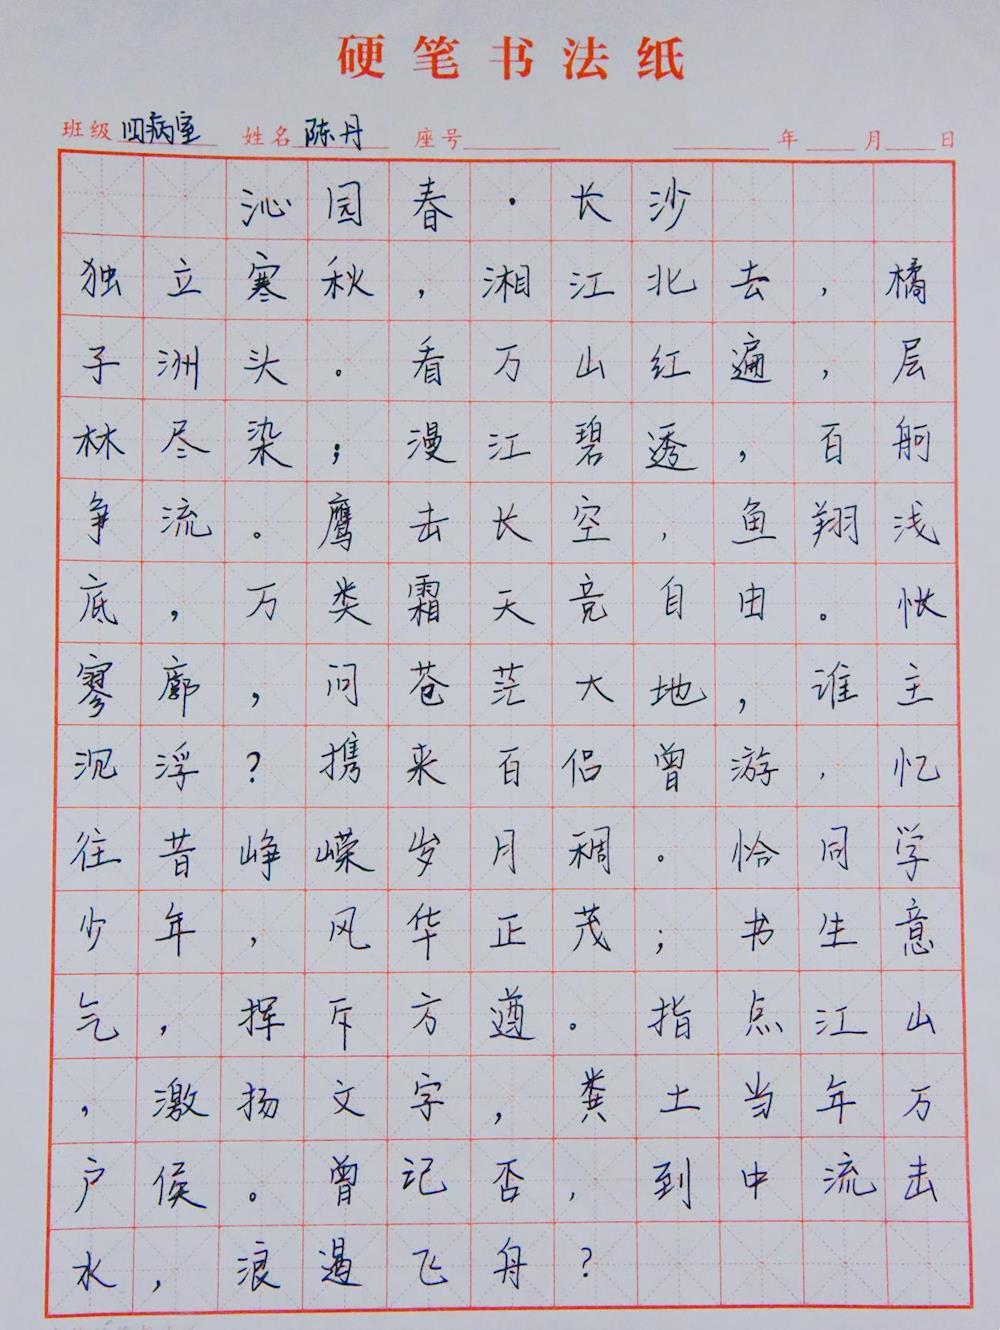 硬笔书法纸
班级 四病室 姓名 陈丹 座号 年 月 日
沁园春·长沙
独立寒秋,湘江北去,橘
子洲头。看万山红遍,层
林尽染;漫江碧透,百舸
争流。鹰击长空,鱼翔浅
底,万类霜天竞自由。怅
寥廓,问苍茫大地,谁主
沉浮?携来百侣曾游,忆
往昔峥嵘岁月稠。恰同学
少年,风华正茂;书生意
气,挥斥方遒。指点江山
,激扬文字,粪土当年万
户侯。曾记否,到中流击
水,浪遏飞舟?